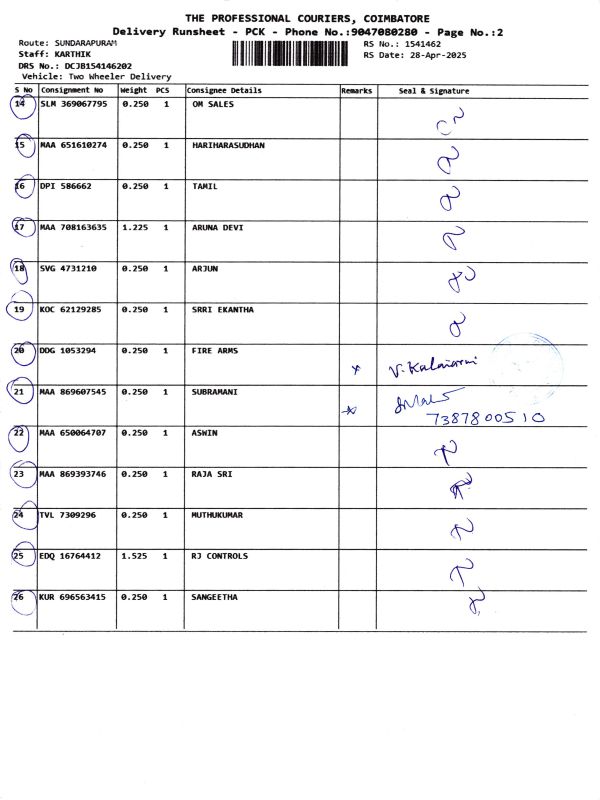 THE PROFESSIONAL COURIERS, COIMBATORE
Delivery Runsheet - PCK - Phone No.:9047080280 - Page No.:2
Route: SUNDARAPURAM RS No.: 1541462
Staff: KARTHIK RS Date: 28-Apr-2025
DRS No.: DCJB154146202
Vehicle: Two Wheeler Delivery
S No Consignment No Weight PCS Consignee Details Remarks Seal & Signature
14 SLM 369067795 0.250 1 OM SALES
15 MAA 651610274 0.250 1 HARIHARASUDHAN
16 DPI 586662 0.250 1 TAMIL
17 MAA 708163635 1.225 1 ARUNA DEVI
18 SVG 4731210 0.250 1 ARJUN
19 KOC 62129285 0.250 1 SRRI EKANTHA
20 DDG 1053294 0.250 1 FIRE ARMS
21 MAA 869607545 0.250 1 SUBRAMANI
7387800510
22 MAA 650064707 0.250 1 ASWIN
23 MAA 869393746 0.250 1 RAJA SRI
24 TVL 7309296 0.250 1 MUTHUKUMAR
25 EDQ 16764412 1.525 1 RJ CONTROLS
26 KUR 696563415 0.250 1 SANGEETHA